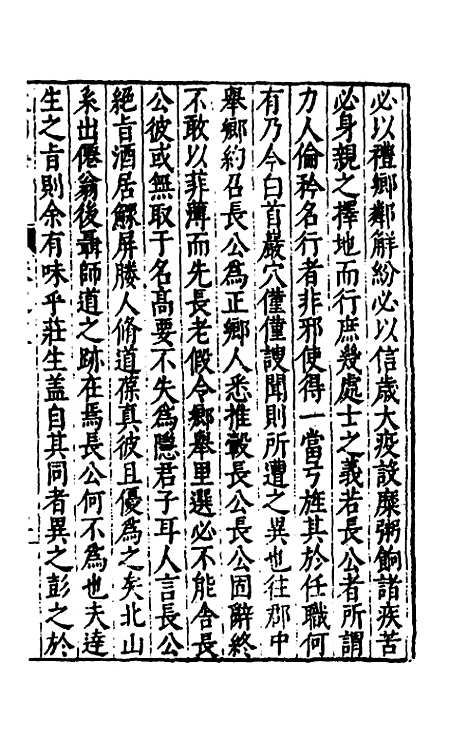 必以禮鄉鄰解紛必以信歲大疫設糜粥餉諸疾苦
必身親之擇地而行庶幾處士之義若長公者所謂
力人倫矜名行者非邪使得一當弓旌其於任職何
有乃今白首嚴穴僅僅謏聞則所遭之異也往郡中
舉鄉約召長公為正鄉人悉推轂長公長公固辭終
不敢以菲薄而先長老假令鄉舉里選必不能舍長
公彼或無取于名高要不失為隱君子耳人言長公
絕旨酒居觶屏媵人脩道葆真彼且優為之矣北山
系出僊翁後聶師道之跡在焉長公何不為也夫達
生之旨則余有味乎莊生蓋自其同者異之彭之於